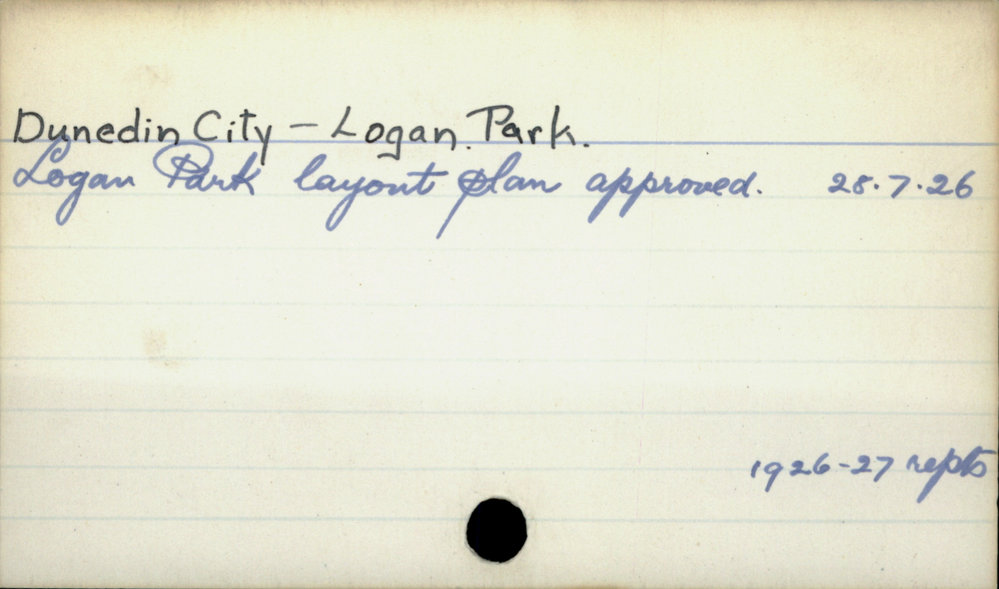 Dunedin City – Logan Park.
Logan Park layout plan approved. 28.7.26
1926-27 repts